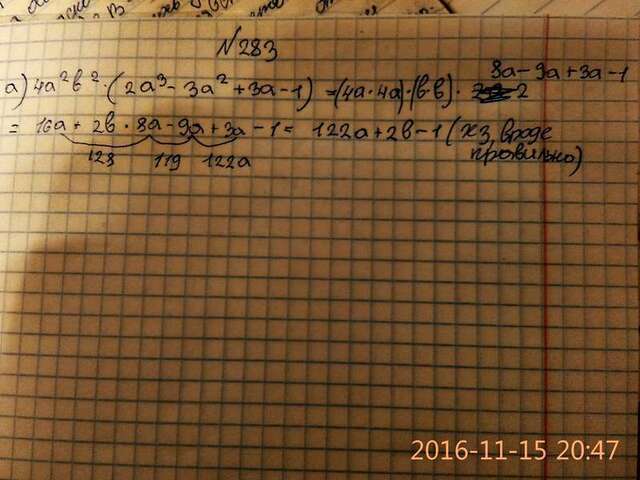 N283
а) 4a²в² · (2a³ - 3a² + 3a - 1) = (4a · 4a) · (в · в) · 8a - 9a + 3a - 1
2
= 16a + 2в · 8a - 9a + 3a - 1 = 122a + 2в - 1 (хз, вроде правильно)
128 119 122a
2016-11-15 20:47